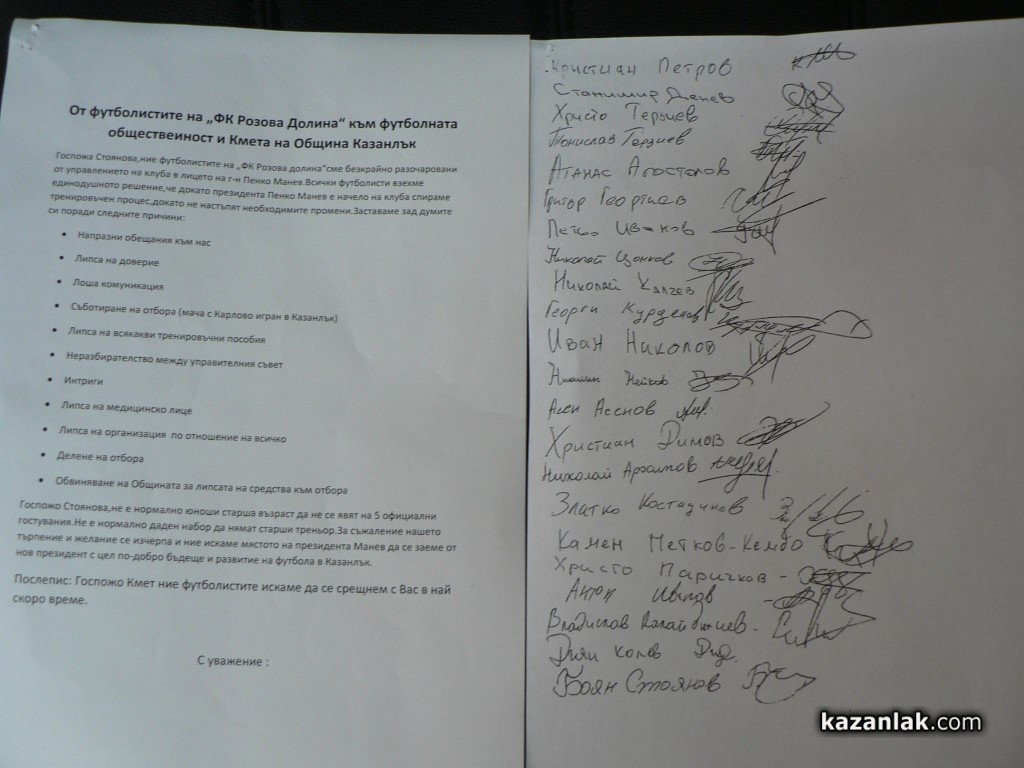 От футболистите на „ФК Розова Долина“ към футболната
общественност и Кмета на Община Казанлък
Госпожа Стоянова,ние футболистите на „ФК Розова долина“сме безкрайно разочаровани
от управлението на клуба в лицето на г-н Пенко Манев.Всички футболисти взехме
единодушното решение,че докато президента Пенко Манев е начело на клуба спираме
тренировъчен процес,докато не настъпят необходимите промени.Заставаме зад думите
си поради следните причини:
• Напразни обещания към нас
• Липса на доверие
• Лоша комуникация
• Съботиране на отбора (мача с Карлово игран в Казанлък)
• Липса на всякакви тренировъчни пособия
• Неразбирателство между управителния съвет
• Интриги
• Липса на медицинско лице
• Липса на организация по отношение на всичко
• Делене на отбора
• Обвиняване на Общината за липсата на средства към отбора
Госпожо Стоянова,не е нормално юноши старша възраст да не се явят на 5 официални
гостувания.Не е нормално даден набор да нямат старши треньор.За съжаление нашето
търпение и желание се изчерпа и ние искаме мястото на президента Манев да се заеме от
нов президент с цел по-добро бъдеще и развитие на футбола в Казанлък.
Послепис: Госпожо Кмет ние футболистите искаме да се срещнем с Вас в най
скоро време.
С уважение :
Кристиан Петров
Станимир Денев
Христо Терзиев
Тонислав Терзиев
Атанас Апостолов
Григор Георгиев
Петко Иванов
Николай Цонков
Николай Калчев
Георги
Иван Николов
Нейков
Асен Асенов
Християн Димов
Николай
Златко Костадинов
Камен Петков-Кембо
Христо Паричков -
Антон
Владислав
Диян Колев
Боян Стоянов
kazanlak.com